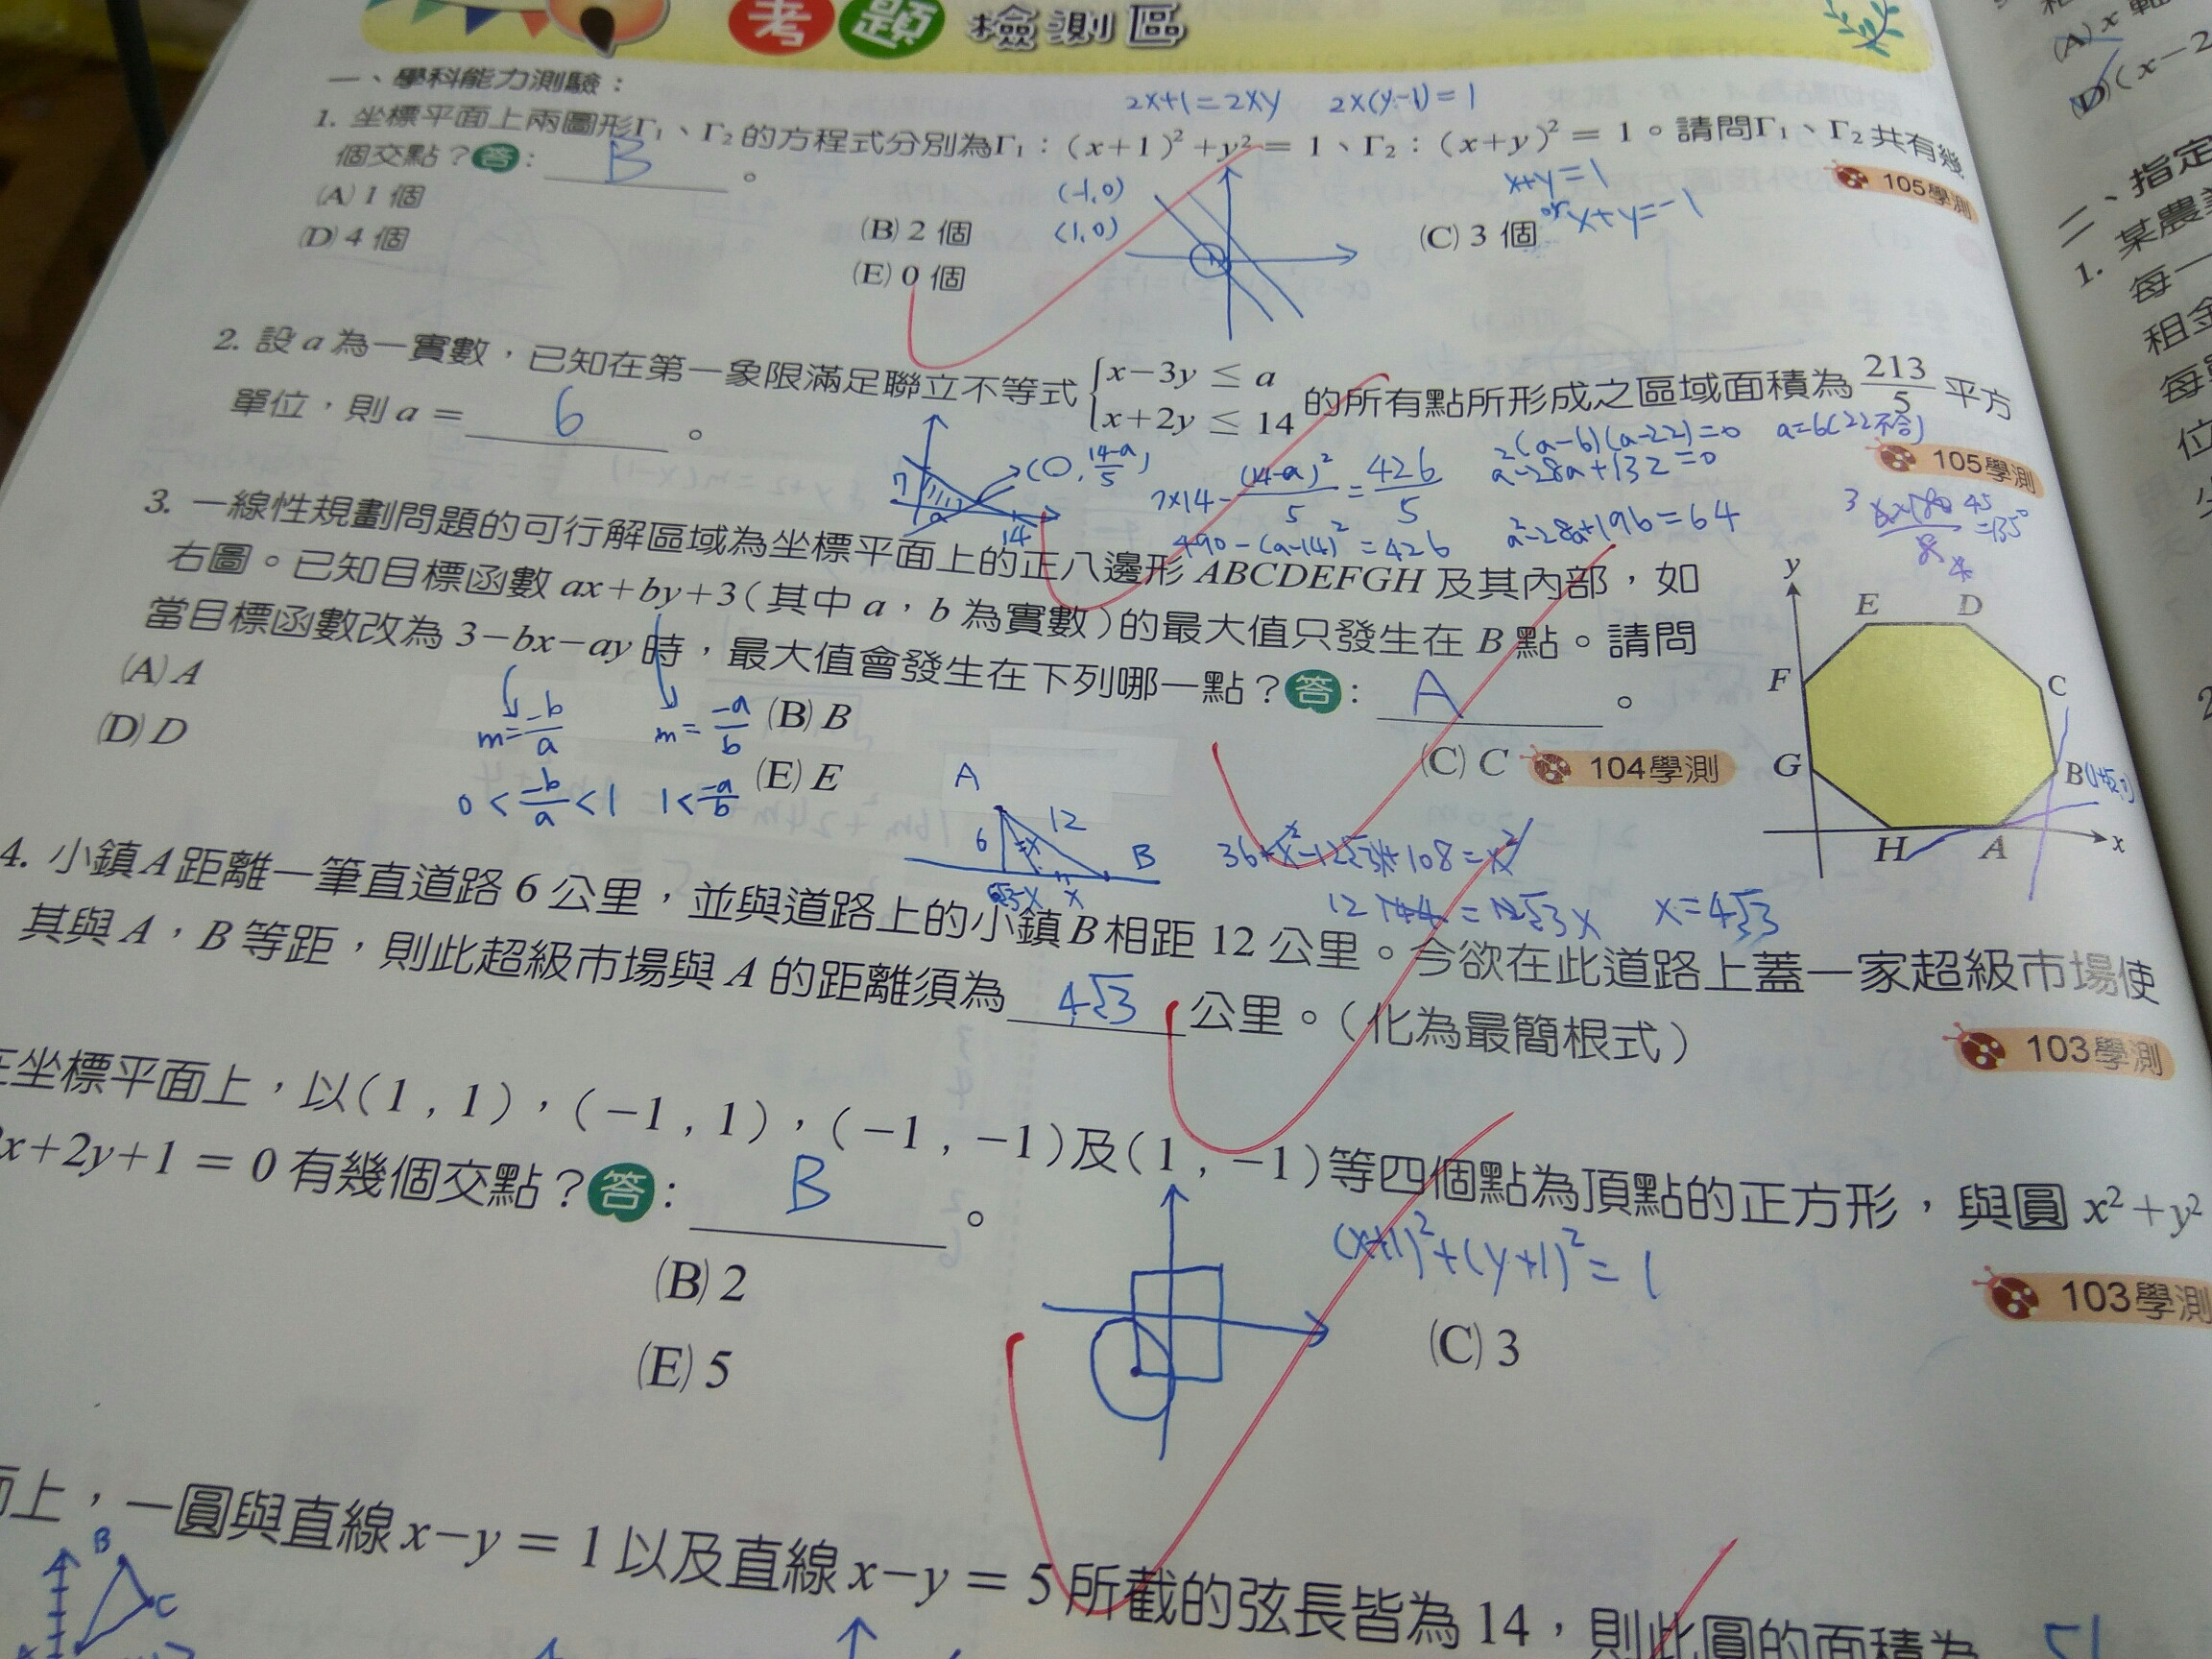 考題檢測區
一、學科能力測驗：
2x+1=2xy 2x(y-1)=1
1. 坐標平面上兩圖形Γ₁、Γ₂的方程式分別為Γ₁：(x+1)²+y²=1、Γ₂：(x+y)²=1。請問Γ₁、Γ₂共有幾
個交點？答： B 。
105學測
(A) 1 個
(B) 2 個
(C) 3 個
(D) 4 個
(E) 0 個
(-1,0)
(1,0)
x+y=1
or x+y=-1
2. 設 a 為一實數，已知在第一象限滿足聯立不等式 { x-3y ≤ a x+2y ≤ 14 的所有點所形成之區域面積為 213/5 平方
單位，則 a = 6 。
105學測
7 a 14 (0, (14-a)/5)
7×14-(14-a)²/5=426/5
490-(a-14)²=426
(a-6)(a-22)=0 a=6(22不合)
a²-28a+132=0
a²-28a+196=64
3. 一線性規劃問題的可行解區域為坐標平面上的正八邊形 ABCDEFGH 及其內部，如
右圖。已知目標函數 ax+by+3(其中 a，b 為實數)的最大值只發生在 B 點。請問
當目標函數改為 3-bx-ay 時，最大值會發生在下列哪一點？答： A 。
(A) A
(B) B
(C) C
104學測
(D) D
(E) E
m=-b/a m=-a/b
0<-b/a<1 1<-a/b
y
E D
F C
G B
H A x
A 6 12 B
6√3-x x
36+x²-12√3x+108=x²
144=12√3x x=4√3
4. 小鎮A距離一筆直道路 6 公里，並與道路上的小鎮B相距 12 公里。今欲在此道路上蓋一家超級市場使
其與 A，B 等距，則此超級市場與 A 的距離須為 4√3 公里。(化為最簡根式)
103學測
坐標平面上，以(1，1)，(-1，1)，(-1，-1)及(1，-1)等四個點為頂點的正方形，與圓 x²+y²
x+2y+1=0 有幾個交點？答： B 。
(x+1)²+(y+1)²=1
103學測
(B) 2
(C) 3
(E) 5
面上，一圓與直線 x-y=1 以及直線 x-y=5 所截的弦長皆為 14，則此圓的面積為 51
B
C
(A) x
(D) (x-2
二、指定
1. 某農
每一
租金
每
位